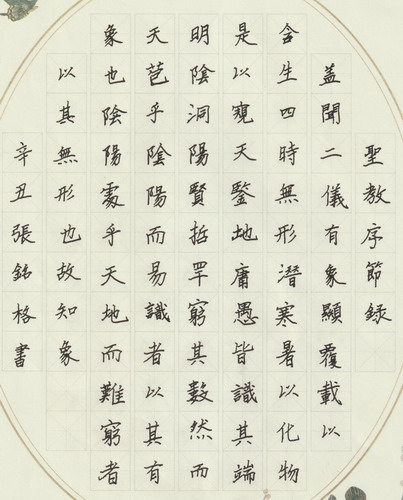 聖教序節録
蓋聞二儀有象顯覆載以
含生四時無形潛寒暑以化物
是以窺天鑒地庸愚皆識其端
明陰洞陽賢哲罕窮其數然而
天苞乎陰陽而易識者以其有
象也陰陽處乎天地而難窮者
以其無形也故知象
辛丑張銘格書